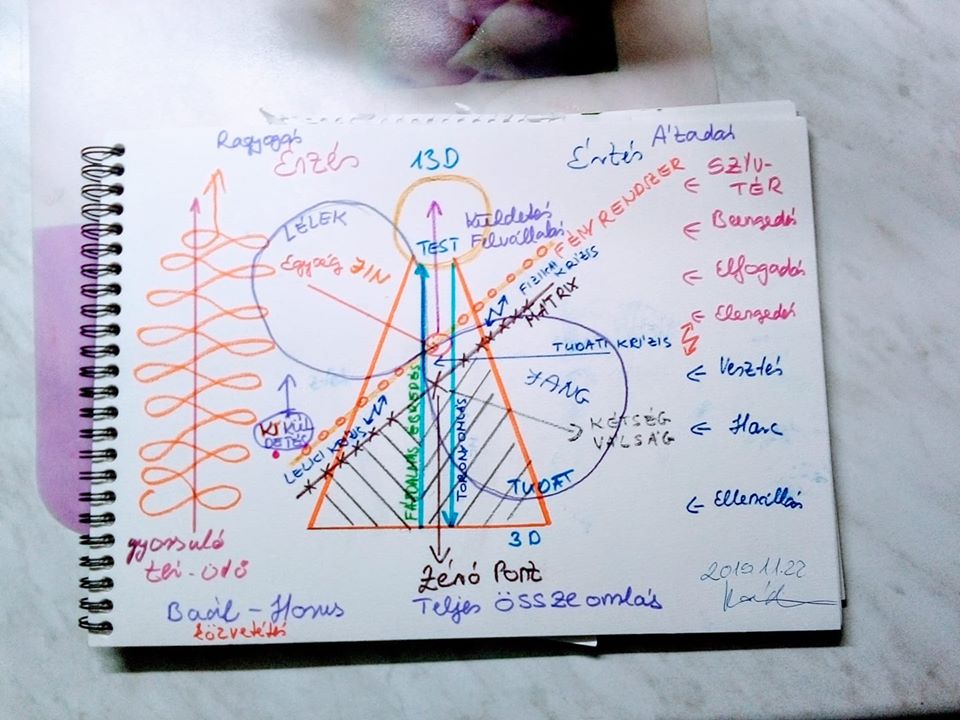 Ragyogás
Érzés
13D
Értés
Átadás
SZÍV-
TÉR
Beengedés
Elfogadás
Elengedés
Vesztés
Harc
Ellenállás
LÉLEK
Egység JIN
TEST
Küldetés
Felvállalás
FÉNYRENDSZER
FIZIKAI
KRÍZIS
MÁTRIX
TUDATI KRÍZIS
JANG
KÉTSÉG
VÁLSÁG
TUDAT
KI KÜL
DETÉS
LELKI KRÍZIS
FÁJDALMAS ÉBREDÉS
TORONYOMLÁS
3D
gyorsuló
tér-idő
Zéró Pont
Teljes ÖSSZEomlás
Baál - Hórus
közvetítés
2019.11.22